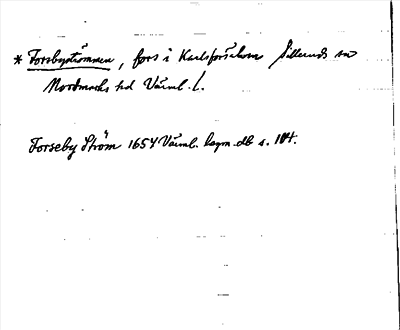 * Forsbyströmmen, fors i Karlsforsälven Sillerud sn
Nordmarks hd Värml. l.
Forseby Ström 1654 Värml. bergm. db s. 104.